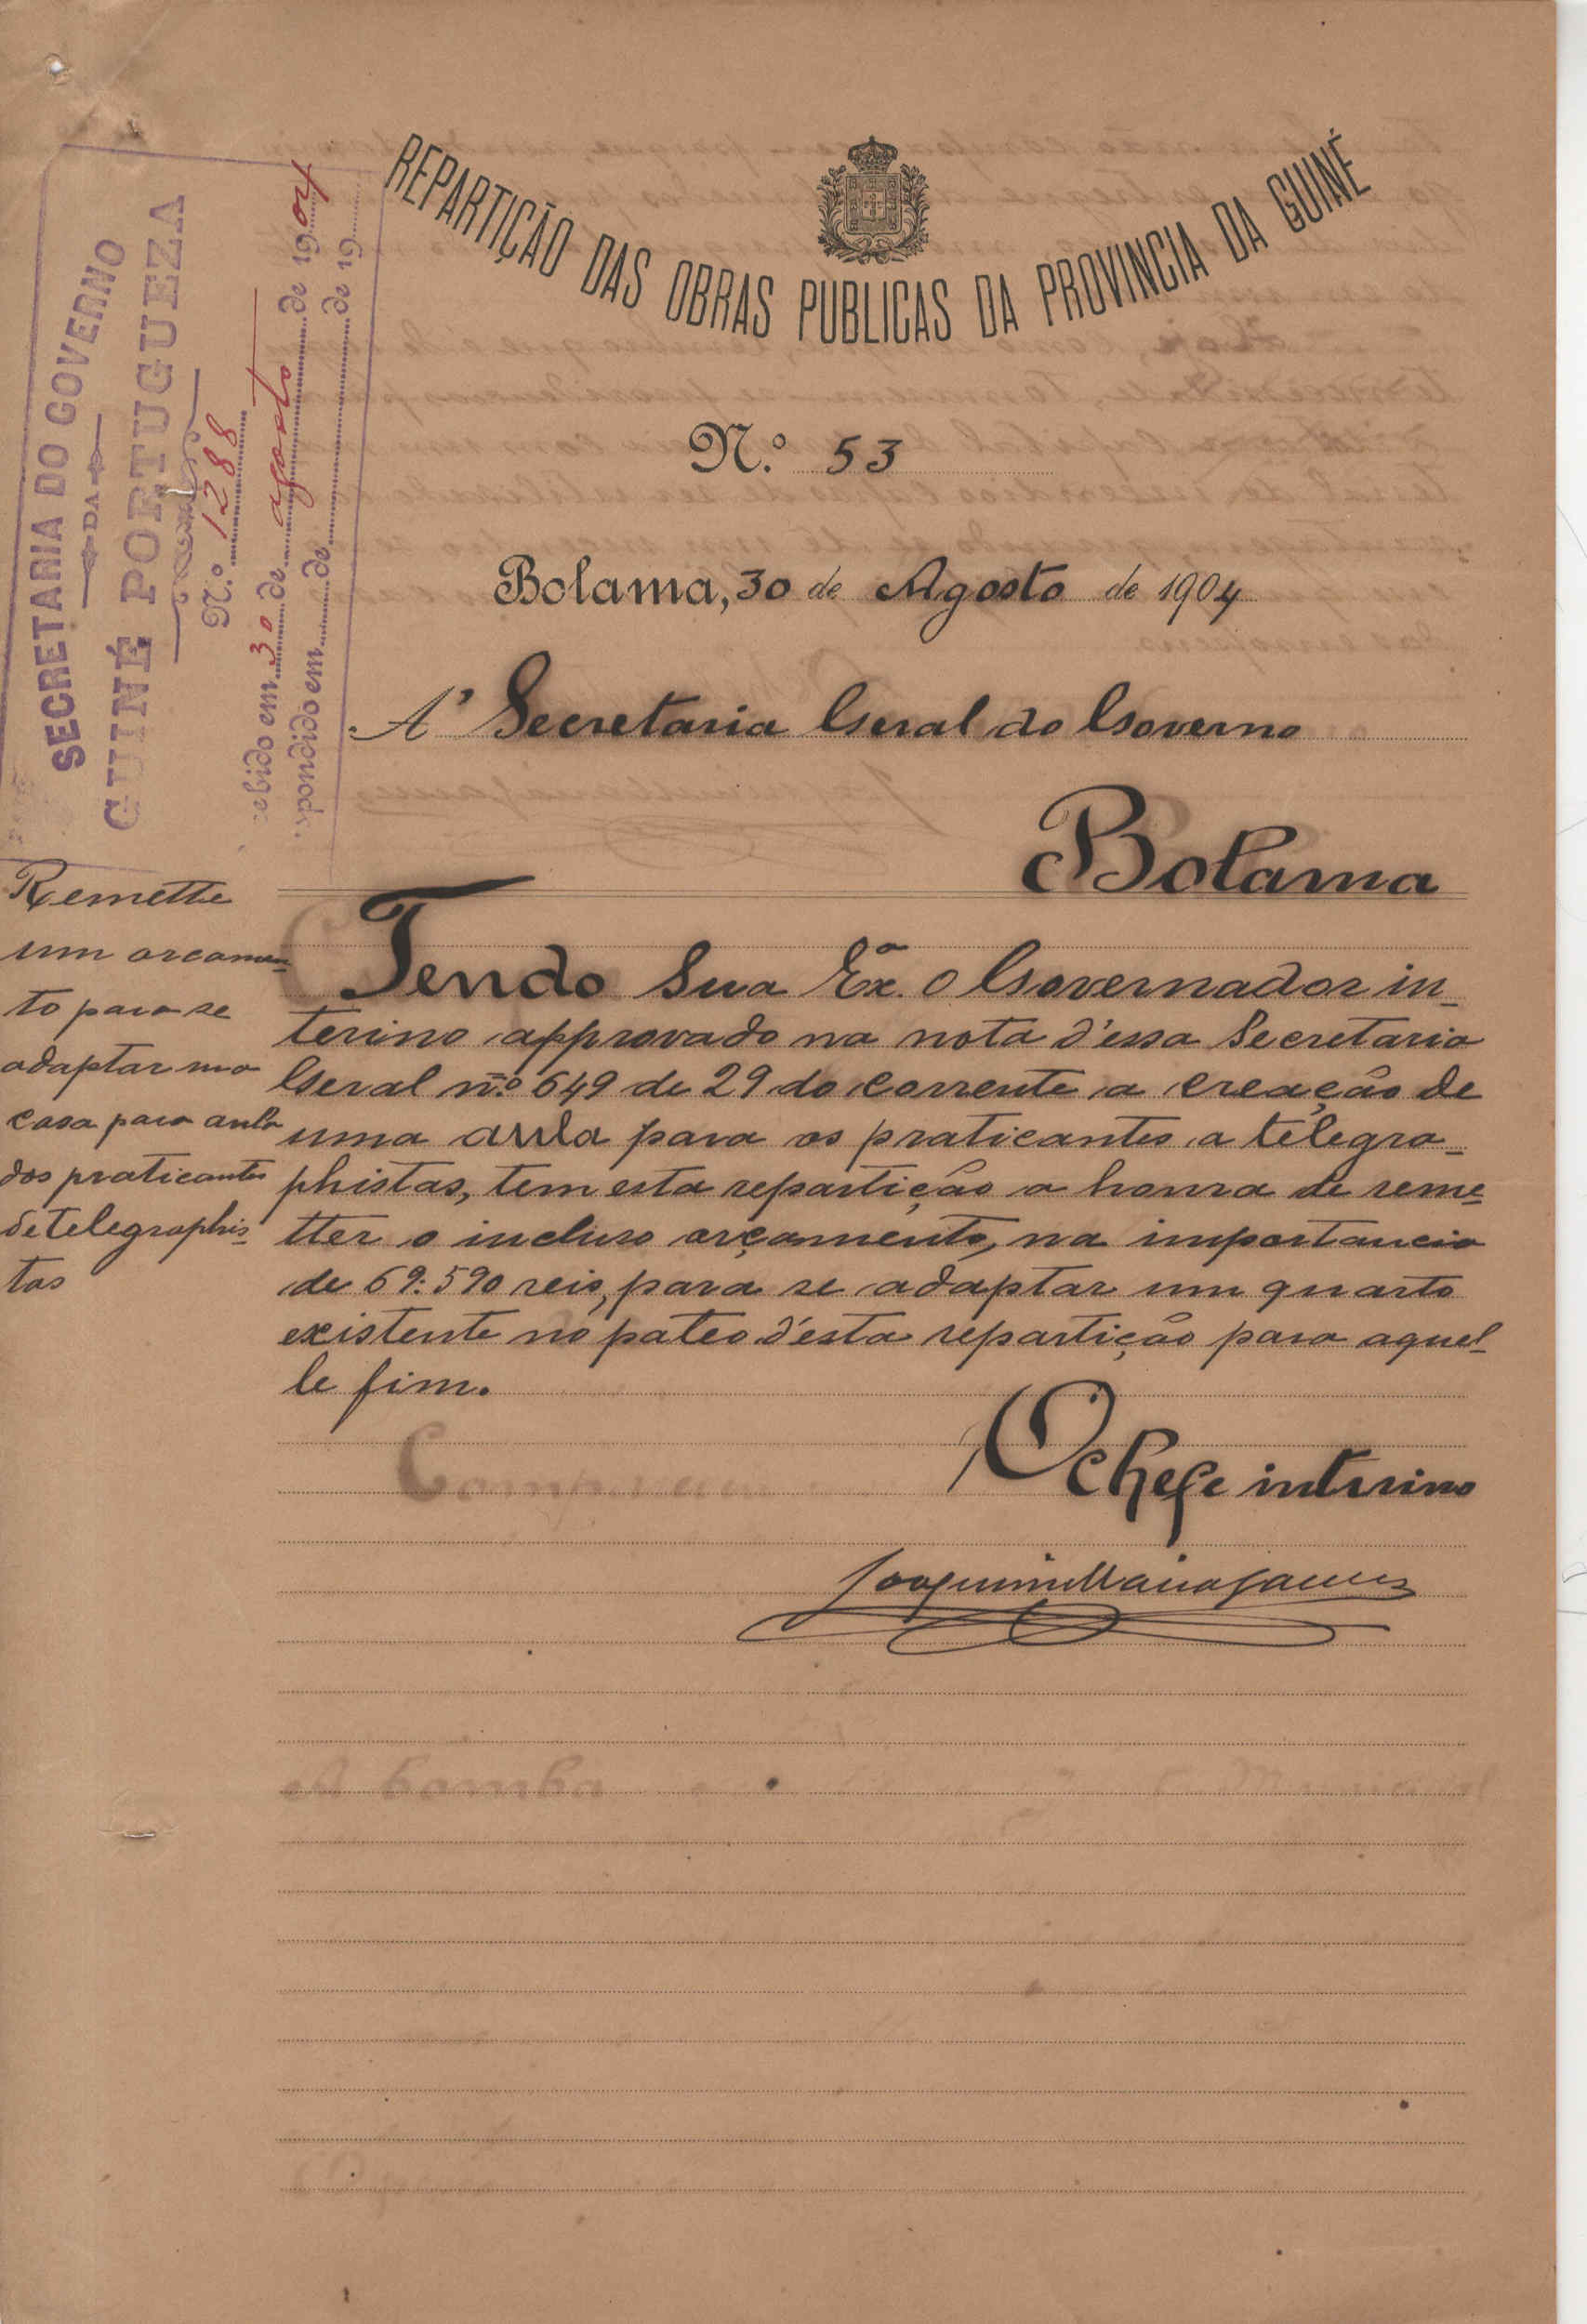 REPARTIÇÃO DAS OBRAS PUBLICAS DA PROVINCIA DA GUINÉ
N.º 53
Bolama, 30 de Agosto de 1904
SECRETARIA DO GOVERNO
DA
GUINÉ PORTUGUEZA
N.º 1288
cebido em 30 de agosto de 1904
spondido em de de 19
A' Secretaria Geral do Governo
Bolama
Remette
um orcamen-
to para se
adaptar uma
casa para aula
dos praticantes
de telegraphis-
tas
Tendo Sua Exª. o Governador in-
terino approvado na nota d'essa Secretaria
Geral n.º 649 de 29 do corrente a creação de
uma aula para os praticantes a telegra-
phistas, tem esta repartição a honra de reme-
tter o incluso orçamento, na importancia
de 69:590 reis, para se adaptar um quarto
existente no pateo d'esta repartição para aquel-
le fim.
O chefe interino
Joaquim